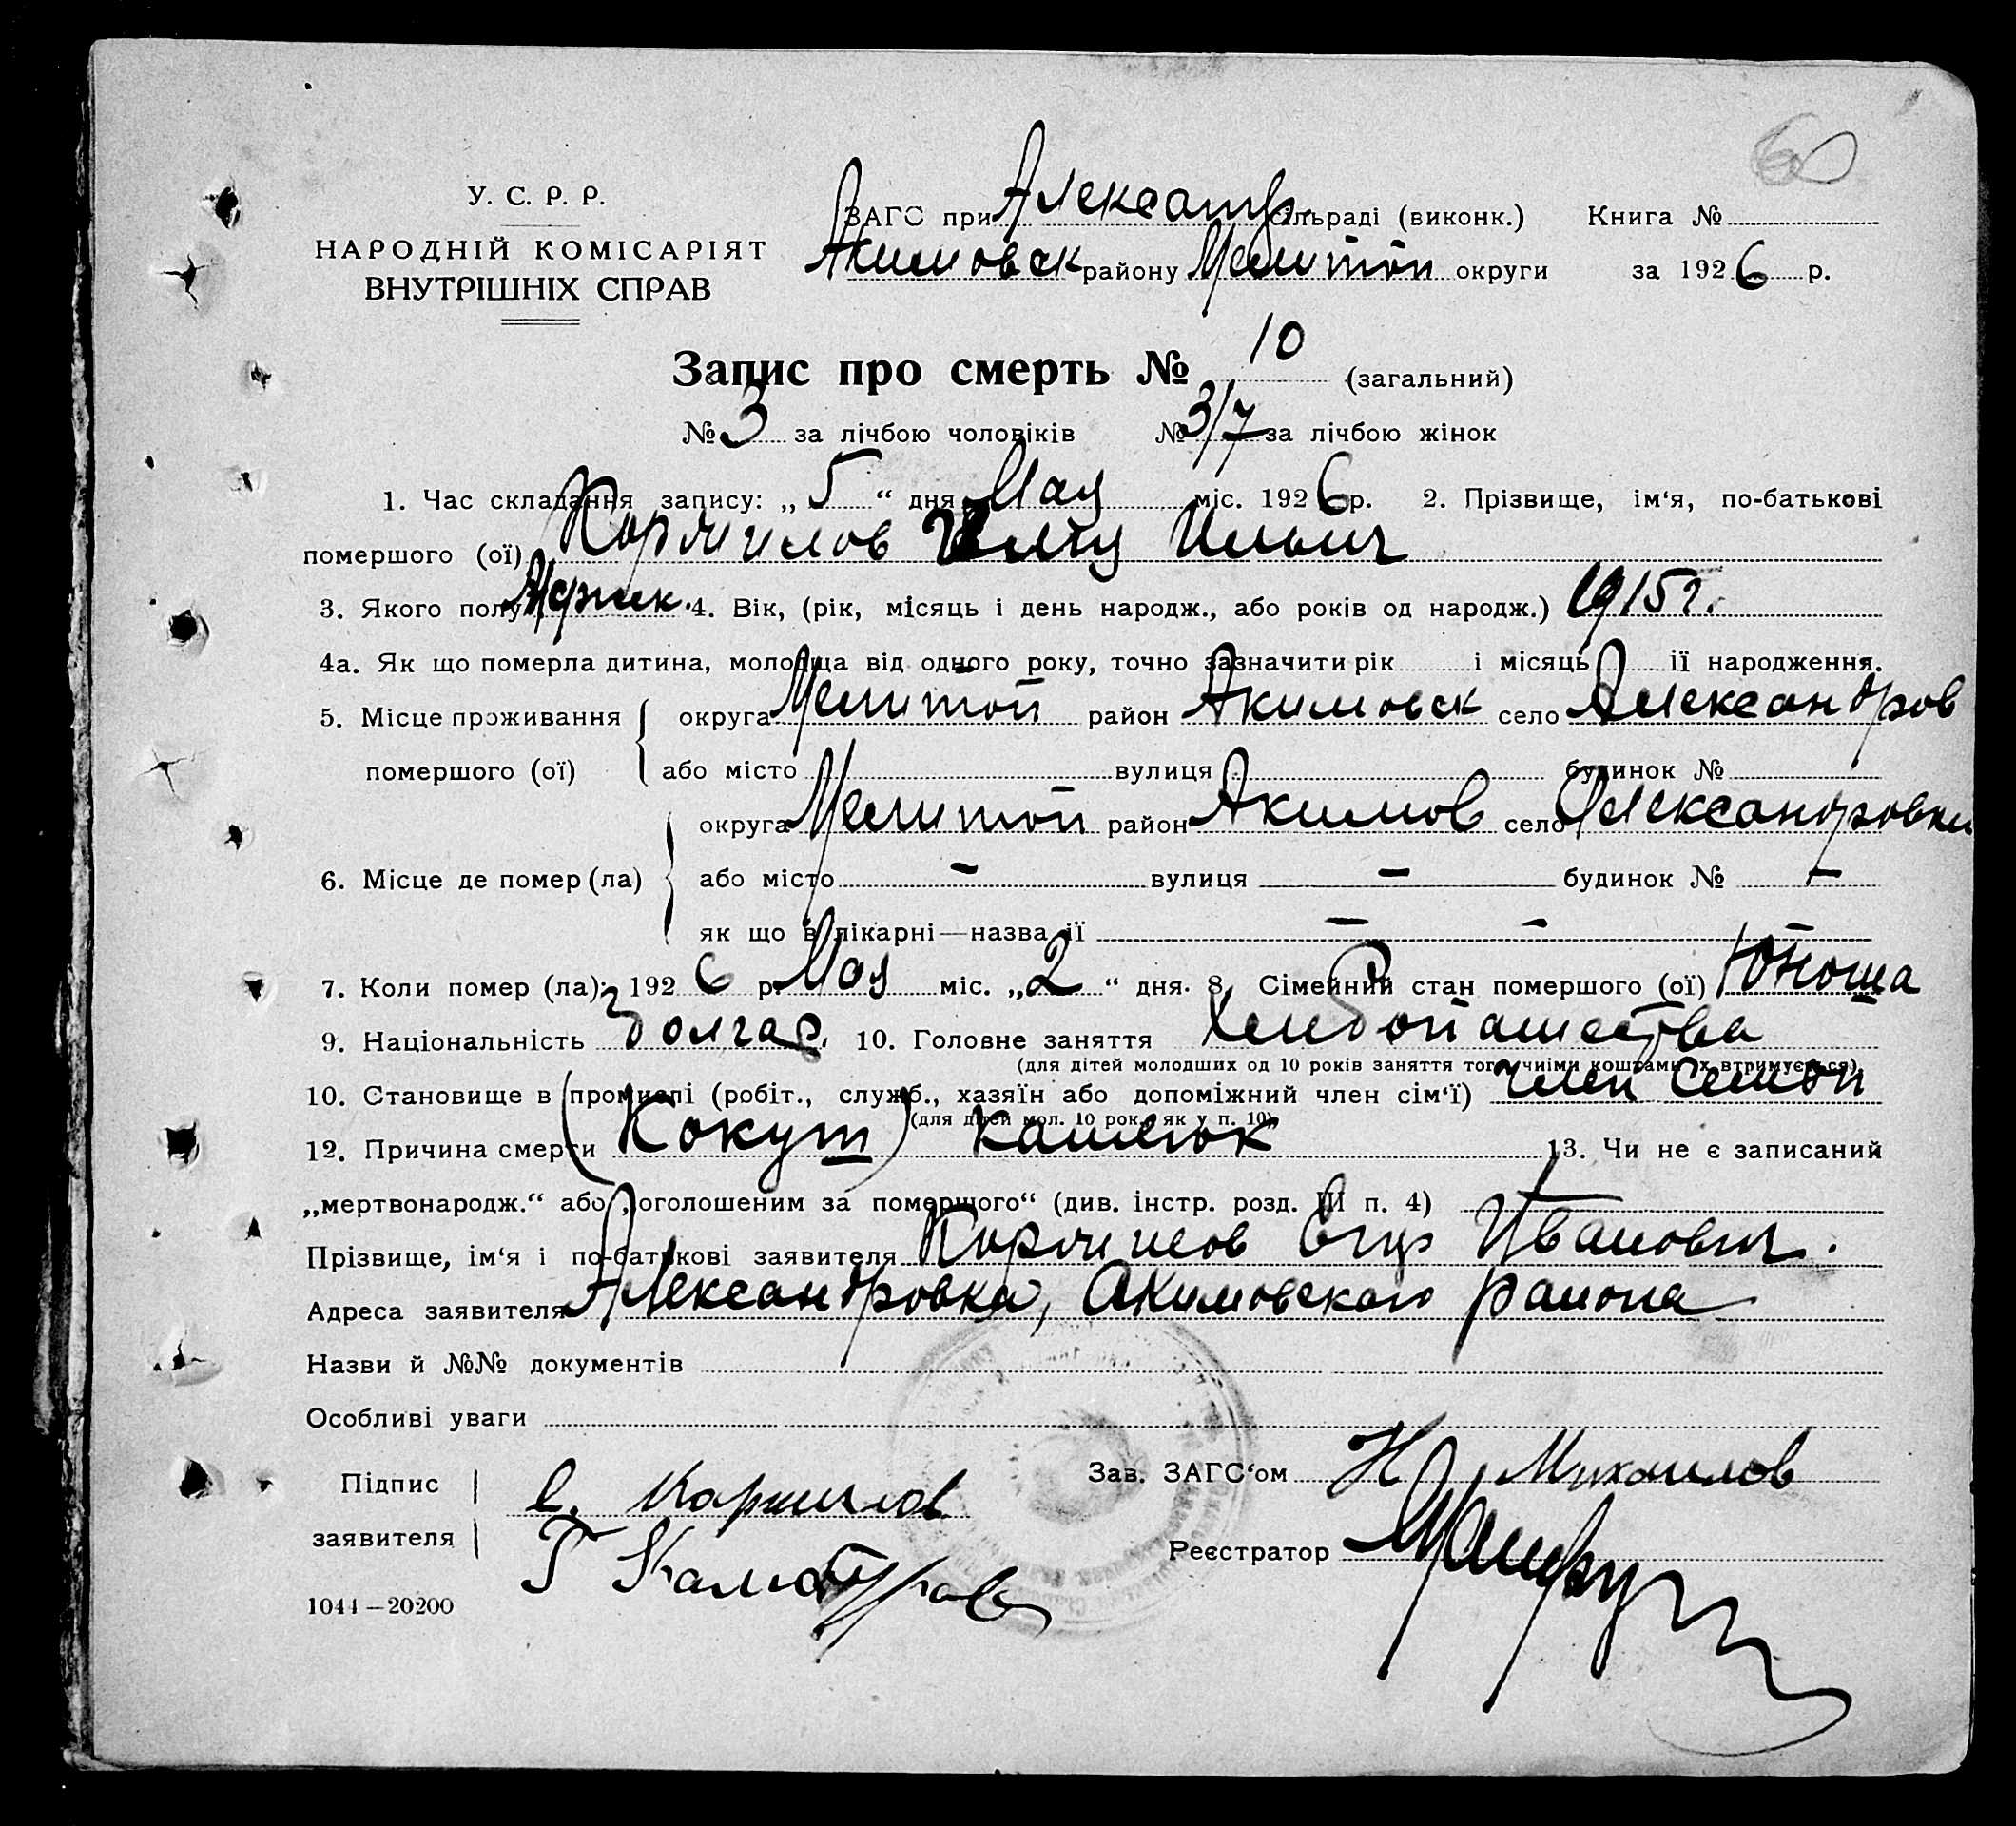 60
У. С. Р. Р.
НАРОДНІЙ КОМІСАРІЯТ
ВНУТРІШНІХ СПРАВ
ЗАГС при Александр сільраді (виконк.) Книга №
Акимовск району Мелитоп округи за 1926 р.
Запис про смерть № 10 (загальний)
№ 3 за лічбою чоловіків № 3/7 за лічбою жінок
1. Час складання запису: „5“ дня Мая міс. 1926 р. 2. Прізвище, ім‘я, по-батькові
помершого (ої) Ильич
3. Якого полу Мужск. 4. Вік, (рік, місяць і день народж., або років од народж.) 1915г.
4а. Як що померла дитина, молодша від одного року, точно зазначити рік — і місяць ії народження.
5. Місце проживання округа Мелитоп район Акимовск село Александров
помершого (ої) або місто вулиця будинок №
округа Мелитоп район Акимов село Александровка
6. Місце де помер (ла) або місто — вулиця — будинок № —
як що в лікарні—назва ії — —
7. Коли помер (ла): 1926 р. Мая міс. „2“ дня. 8. Сімейний стан помершого (ої) Юноша
9. Національність Болгар. 10. Головне заняття Хлебопашества
(для дітей молодших од 10 років заняття того чиїми коштами їх втримується)
10. Становище в промислі (робіт., служб., хазяїн або допоміжний член сім‘ї) член семьи
(для дітей мол. 10 рок., як у п. 10)
12. Причина смерти (Кокуш) кашлюк 13. Чи не є записаний
„мертвонародж.“ або „оголошеним за помершого“ (див. інстр. розд. III п. 4)
Прізвище, ім‘я і по-батькові заявителя Иванович.
Адреса заявителя Александровка, Акимовского района
Назви й №№ документів
Особливі уваги
Підпис
заявителя
Зав. ЗАГС‘ом Н Михайлов
Реєстратор
1044—20200